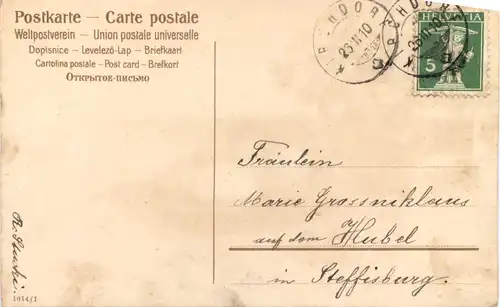 Postkarte — Carte postale
Weltpostverein — Union postale universelle
Dopisnice — Levelező-Lap — Briefkaart
Cartolina postale — Post card — Brefkort
Открытое-письмо
KIRCHDORF
26.II.10
KIRCHDORF
26.II.10
HELVETIA
5
Fräulein
Marie Grossniklaus
auf dem Hubel
in Steffisburg.
5014/1